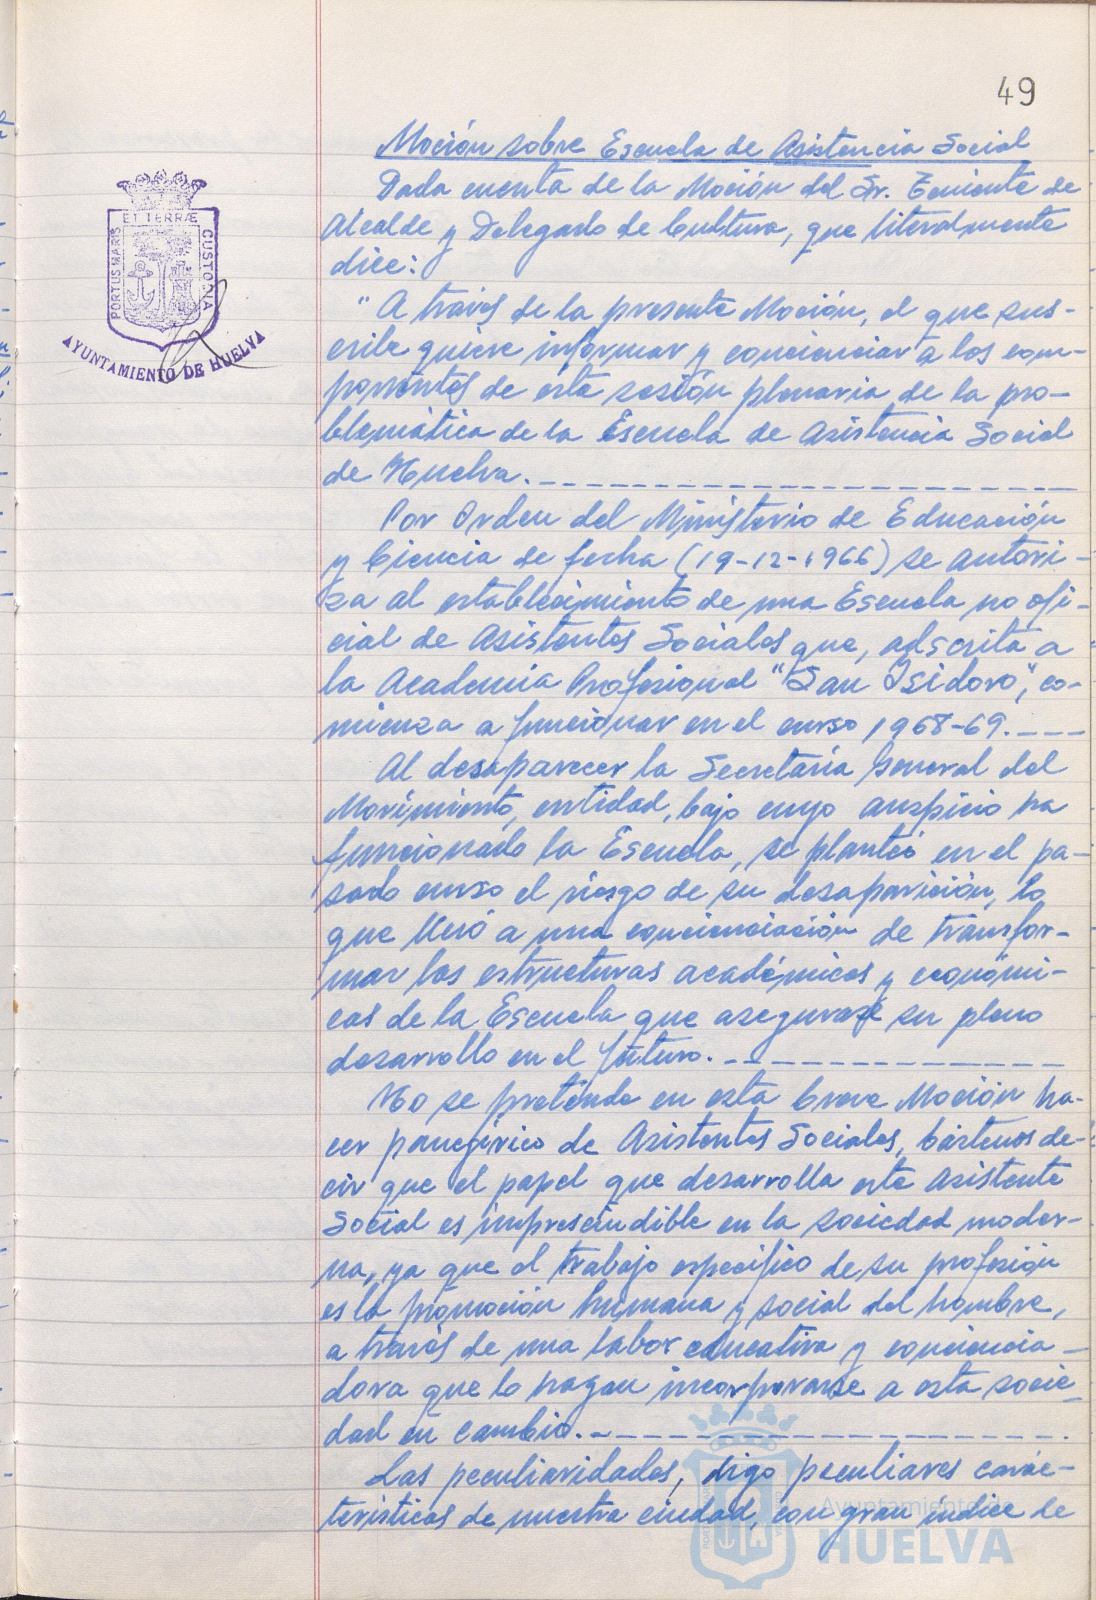 49
Moción sobre Escuela de Asistencia Social
Dada cuenta de la Moción del Sr. Teniente de
Alcalde y Delegado de Cultura, que literalmente
dice:
"A través de la presente Moción, el que sus-
cribe quiere informar y concienciar a los com-
ponentes de esta sesión plenaria, de la pro-
blemática de la Escuela de Asistencia Social
de Huelva.
Por Orden del Ministerio de Educación
y Ciencia de fecha (19-12-1966) se autori-
za al establecimiento de una Escuela no ofi-
cial de Asistentes Sociales que, adscrita a
la Academia Profesional "San Isidoro", co-
mienza a funcionar en el curso 1968-69.
Al desaparecer la Secretaría General del
Movimiento, entidad, bajo cuyo auspicio ha
funcionado la Escuela, se planteó en el pa-
sado curso el riesgo de su desaparición, lo
que llevó a una concienciación de transfor-
mar las estructuras académicas y económi-
cas de la Escuela que asegurase su pleno
desarrollo en el futuro.
No se pretende en esta breve Moción ha-
cer panegírico de Asistentes Sociales, bástenos de-
cir que el papel que desarrolla este Asistente
Social es imprescindible en la sociedad moder-
na, ya que el trabajo específico de su profesión
es la promoción humana y social del hombre,
a través de una labor educativa y conciencia-
dora que lo hagan incorporarse a esta socie-
dad en cambio.
Las peculiaridades, digo peculiares carac-
terísticas de nuestra ciudad, con gran índice de
PORTUS MARIS ET TERRÆ CUSTODIA
AYUNTAMIENTO DE HUELVA
Ayuntamiento de
HUELVA